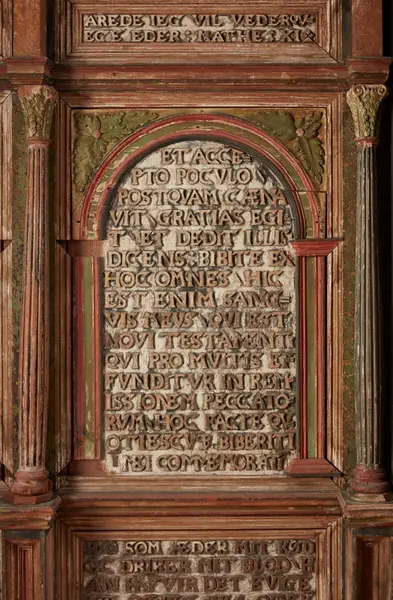 AREDE IEG VIL VEDERQV
EGE EDER · MATHE · XI
ET ACCE-
PTO POCVLO
POSTQVAM CÆNA
VIT GRATIAS EGI
T ET DEDIT ILLI
DICENS: BIBITE EX
HOC OMNES HIC
EST ENIM SANG-
VIS QVI EST
NOVI TESTAMENTI
QVI PRO MVLTIS EF
FVNDITVR IN REM
ISSIONEM PECCATO
RVM HOC FACTE QV
OTIESCVB BIBERITI
MEI COMMEMORATI
SOM ÆDER MIT
OC DRIKER MIT BLOD H
AN HAFVIR DET EVIGE